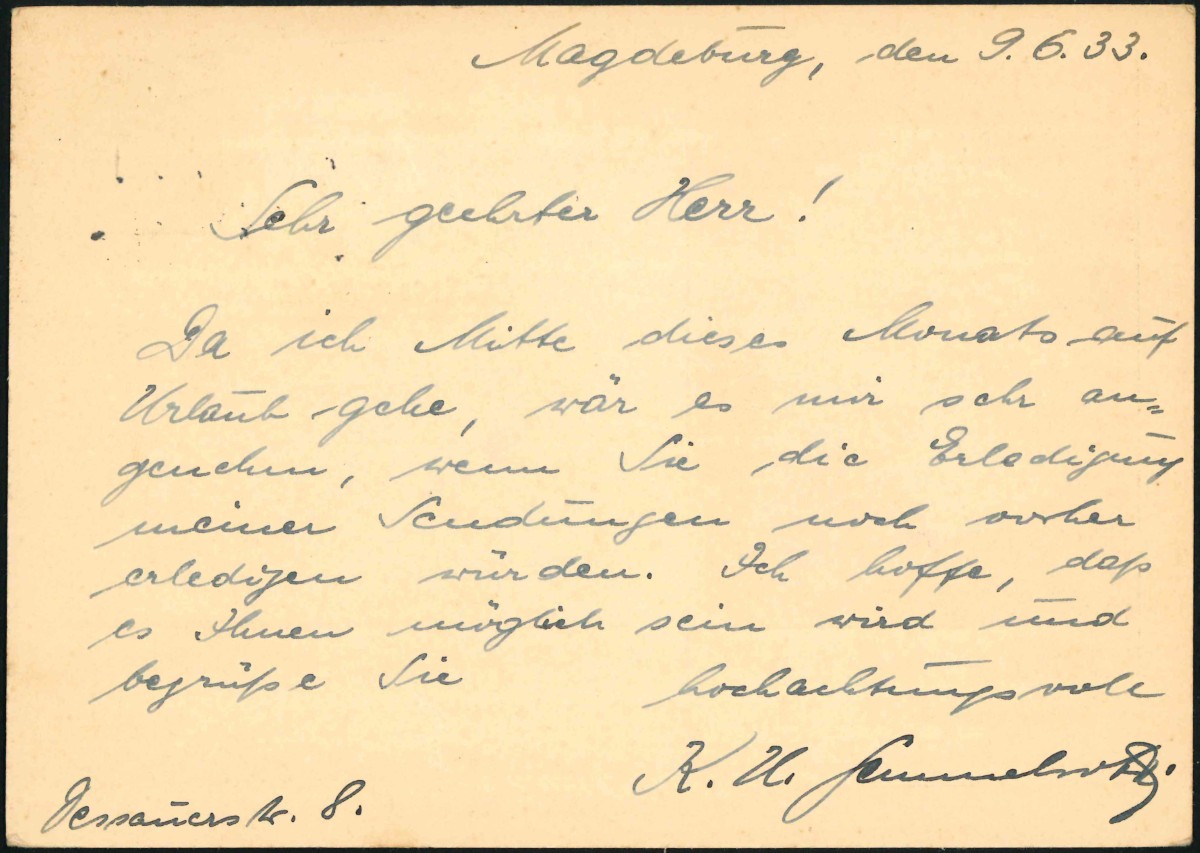 Magdeburg, den 9.6.33.
Sehr geehrter Herr!
Da ich Mitte dieses Monats auf
Urlaub gehe, wär es mir sehr an=
genehm, wenn Sie die Erledigung
meiner Sendungen noch vorher
erledigen würden. Ich hoffe, daß
es Ihnen möglich sein wird und
begrüße Sie
hochachtungsvoll
K. H.
Dessauerstr. 8.